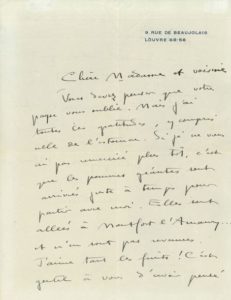 9 RUE DE BEAUJOLAIS
LOUVRE 98-56
Chère Madame et voisine
Vous devez penser que votre
page vous oublie. Mais j'ai
toutes les gratitudes, y compris
celle de l'estomac. Si je ne vous
ai pas remercié plus tôt, c'est
que les pommes géantes sont
arrivées juste à temps pour
partir avec moi. Elles sont
allées à Montfort l'Amaury...
et n'en sont pas revenues.
J'aime tant les fruits ! C'est
gentil à vous d'avoir pensé